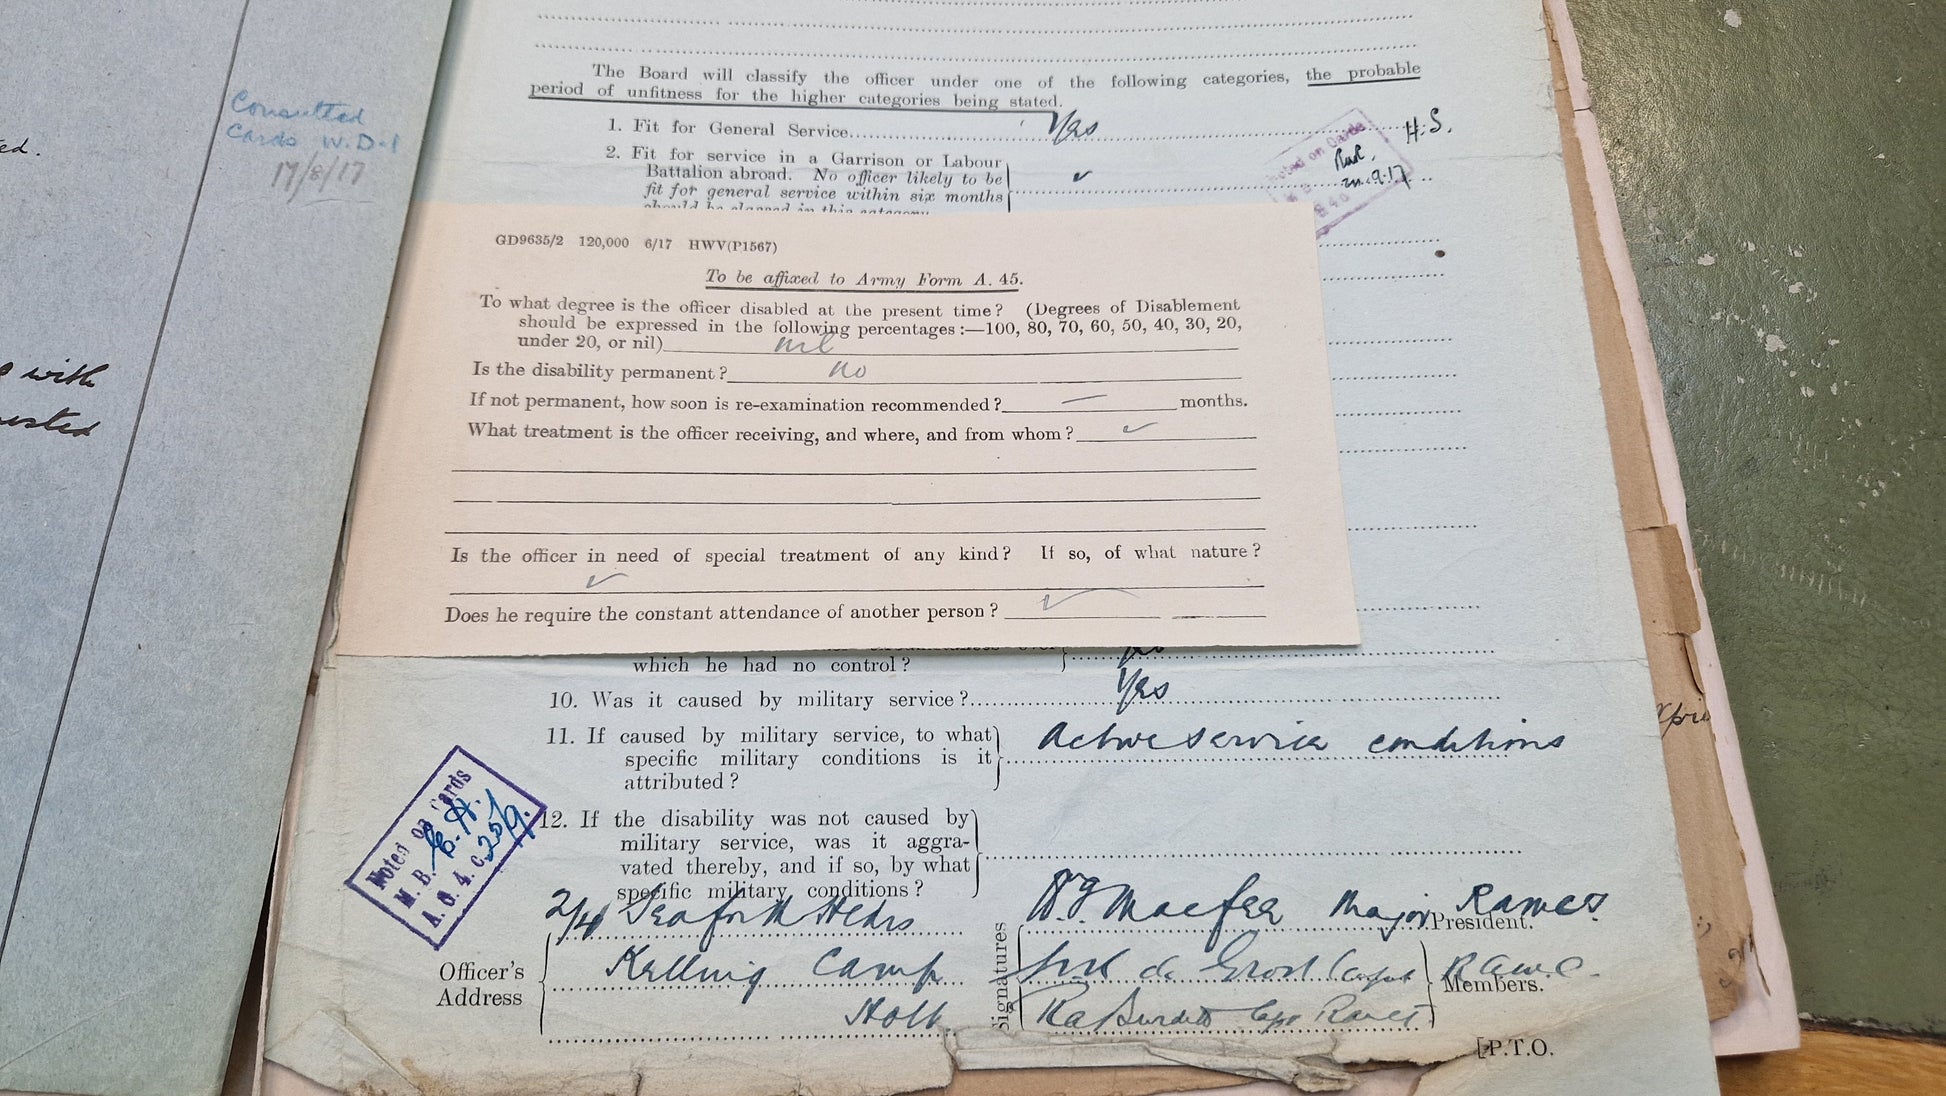 Consulted
Cards W.D-1
17/8/17
ed.
with
The Board will classify the officer under one of the following categories, the probable
period of unfitness for the higher categories being stated.
1. Fit for General Service Yes
H.S.
2. Fit for service in a Garrison or Labour
Battalion abroad. No officer likely to be
fit for general service within six months
should be placed in this category
Noted on Cards
GD9635/2 120,000 6/17 HWV(P1567)
To be affixed to Army Form A. 45.
To what degree is the officer disabled at the present time? (Degrees of Disablement
should be expressed in the following percentages:—100, 80, 70, 60, 50, 40, 30, 20,
under 20, or nil) nil
Is the disability permanent? no
If not permanent, how soon is re-examination recommended? — months.
What treatment is the officer receiving, and where, and from whom?
Is the officer in need of special treatment of any kind? If so, of what nature?
Does he require the constant attendance of another person?
which he had no control? no
10. Was it caused by military service? Yes
11. If caused by military service, to what
specific military conditions is it
attributed?
Active service conditions
12. If the disability was not caused by
military service, was it aggra-
vated thereby, and if so, by what
specific military conditions?
Noted on Cards
M. B.
A. G. 4. c.
25/9.
Officer's
Address
2/4 Seaforth Hdrs
Kelling Camp
Holt
Signatures
Macfee Major President.
Capt Members.
Burdett Capt
[P.T.O.